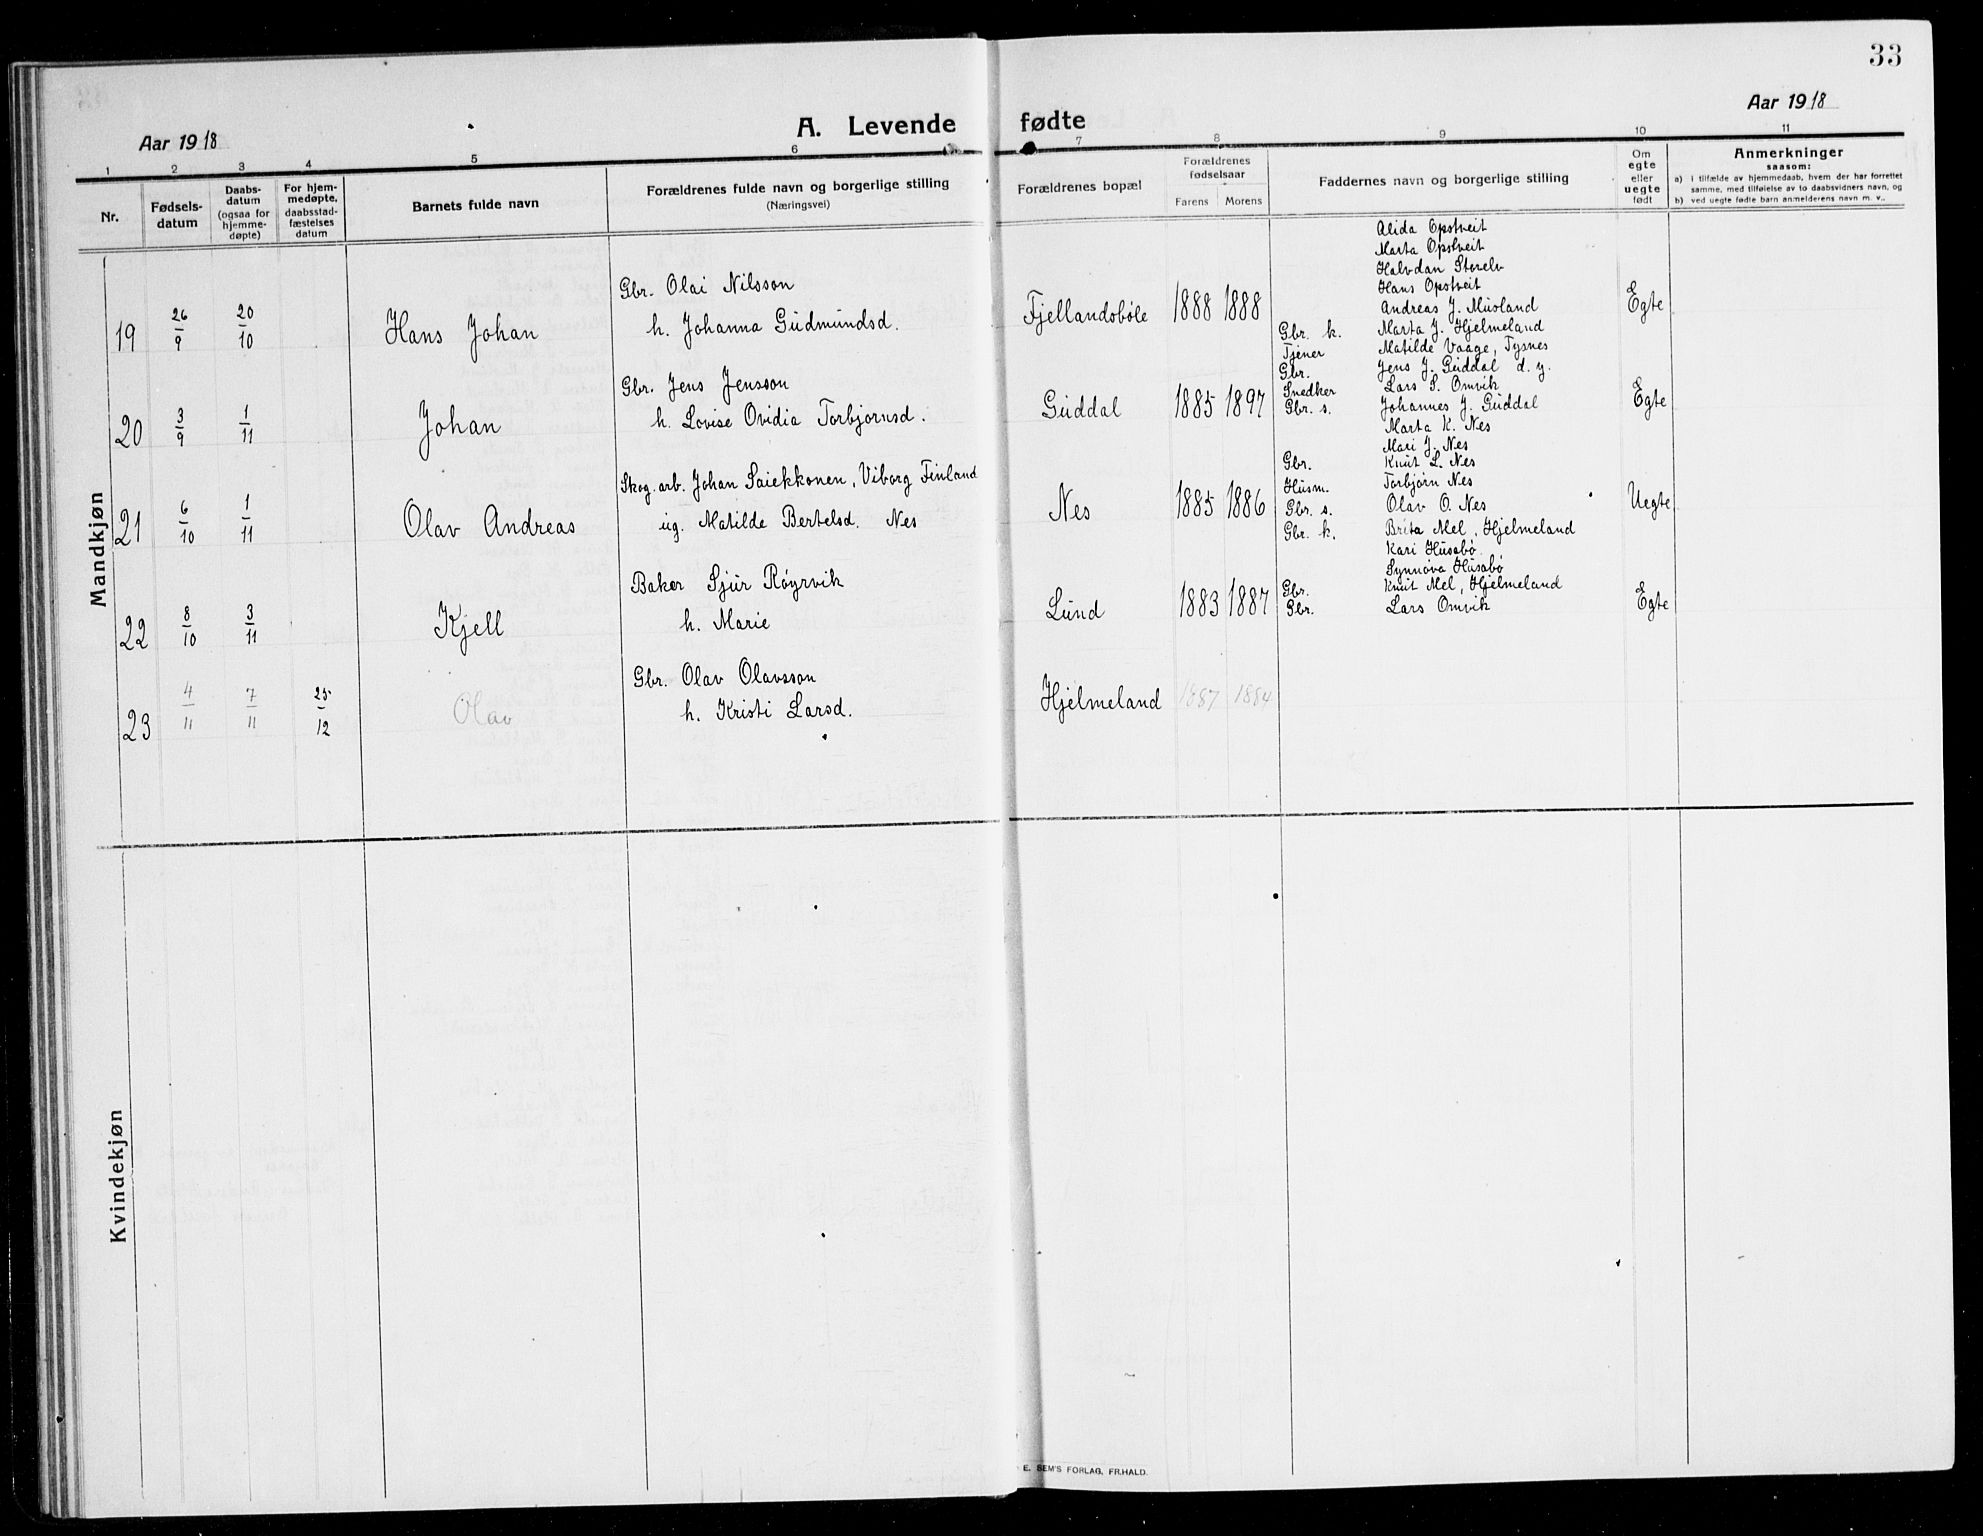 33
Aar 1918
Aar 1918
A. Levende fødte
1 2 3 4 5 6 7 8 9 10 11
Nr.
Fødsels-
datum
Daabs-
datum
(ogsaa for
hjemme-
døpte)
For hjem-
medøpte,
daabsstad-
fæstelses
datum
Barnets fulde navn
Forældrenes fulde navn og borgerlige stilling
(Næringsvei)
Forældrenes bopæl
Forældrenes
fødselsaar
Farens Morens
Faddernes navn og borgerlige stilling
Om
egte
eller
uegte
født
Anmerkninger
saasom:
a) i tilfælde av hjemmedaab, hvem der har forrettet
samme, med tilføielse av to daabsvidners navn, og
b) ved uegte fødte barn anmelderens navn m. v..
Mandkjøn
19 26/9 20/10 Hans Johan
Gbr. Olai Nilsson
h. Johanna Gudmundsd.
Fjellandsbøle 1888 1888
Alida Opstveit
Marta Opstveit
Halvdan Storelv
Hans Opstveit
Andreas J. Musland
Egte
20 3/9 1/11 Johan
Gbr. Jens Jensson
h. Lovise Ovidia Torbjornsd.
Guddal 1885 1897
Gbr. k. Marta J. Hjelmeland
Tjener Matilde Vaage, Tysnes
Gbr. Jens J. Guddal d. y.
Snedker Lars S. Omvik
Gbr. s. Johannes J. Guddal
Egte
21 6/10 1/11 Olav Andreas
Skog. arb. Johan Saiekkonen, Viborg Finland
ug. Matilde Bertelsd. Nes
Nes 1885 1886
Marta K. Nes
Mari J. Nes
Gbr. Knut L. Nes
Husm. Torbjorn Nes
Gbr. s. Olav O. Nes
Uegte
22 8/10 3/11 Kjell
Baker Sjur Røyrvik
h. Marie
Lund 1883 1887
Gbr. k. Brita Mel, Hjelmeland
Kari Husabø
Synnøva Husabø
Gbr. Knut Mel, Hjelmeland
Gbr. Lars Omvik
Egte
23 4/11 7/11 25/12 Olav
Gbr. Olav Olavsson
h. Kristi Larsd.
Hjelmeland 1887 1884
Kvindekjøn
E. SEM'S FORLAG, FR.HALD.